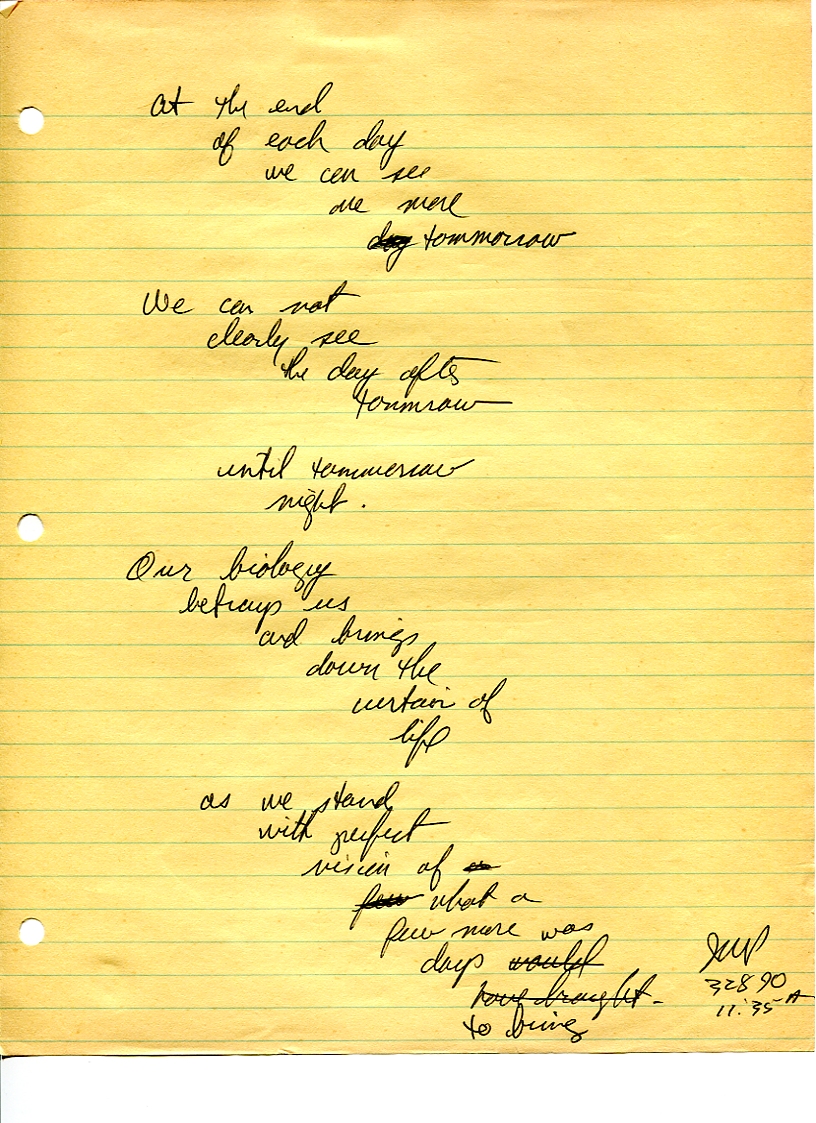 At the end
of each day
we can see
one more
day tommorrow
We can not
clearly see
the day after
tommrow
until tommorrow
night.
Our biology
betrays us
and brings
down the
curtain of
life
as we stand
with perfect
vision of a
few what a
few more was
days would
have brought.
to bring
32890
11:35 A